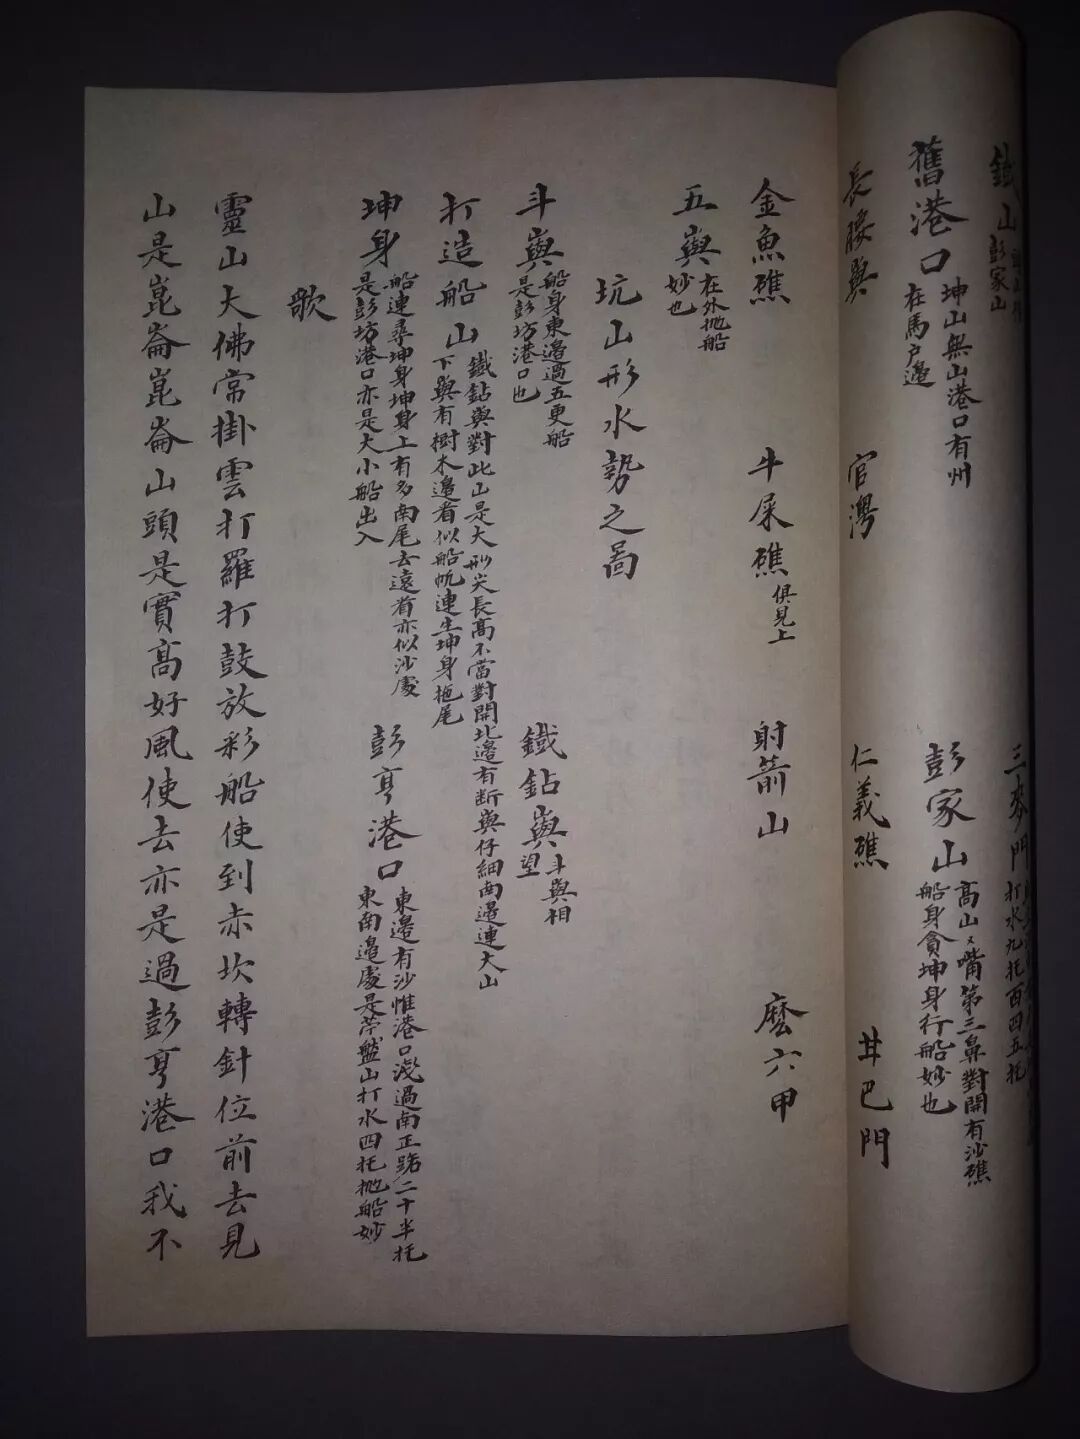 鐵山
彭家山
三麥門
打水九托西四五托
舊港口 坤山無山港口有州
在馬戶邊
彭家山 高山〻嘴第三鼻對開有沙礁
船身貪坤身行船妙也
長腰與 官灣 仁義礁 茸巴門
金魚礁 牛屎礁 俱見上 射箭山 麼六甲
五嶼 在外拋船
妙也
坑山形水勢之啚
斗嶼 船身東邊過五更船
是彭坊港口也
鐵鈷嶼 斗與相
望
打造船山 鐵鈷與對此山是大形尖長高不當對開北邊有断與仔細西邊連大山
下與有樹木邊看似船帆連生坤身拖尾
坤身 船連尋坤身坤身上有多南尾去遠看亦似沙處
是彭坊港口亦是大小船出入
彭亨港口 東邊有沙惟港口淺過南正路二十半托
東南邊處是苧盤山打水四托拋船妙
歌
靈山大佛常掛雲打羅打鼓放彩船使到赤坎轉針位前去見
山是崑崙崑崙山頭是實高好風使去亦是過彭亨港口我不